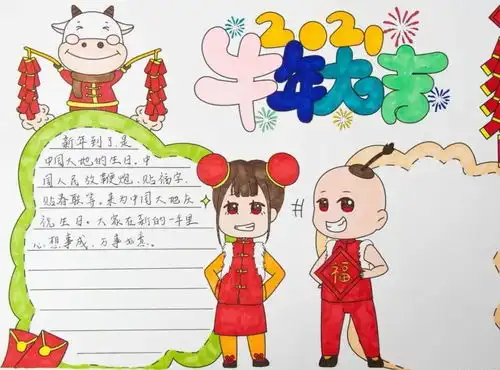 2021
牛年大吉
新年到了是
中国大地的生日,中
国人民放鞭炮、贴福字、
贴春联等。来为中国大地庆
祝生日。大家在新的一年里
心想事成,万事如意。
福